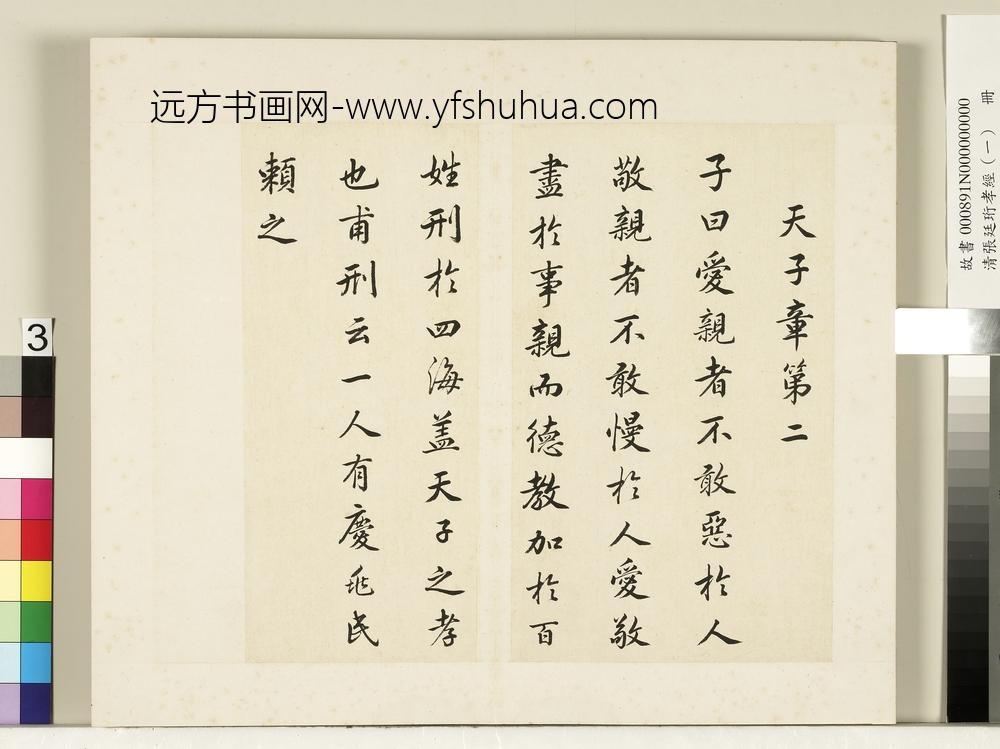 远方书画网-www.yfshuhua.com
天子章第二
子曰愛親者不敢惡於人
敬親者不敢慢於人愛敬
盡於事親而德教加於百
姓刑於四海盖天子之孝
也甫刑云一人有慶兆民
賴之
故書 000891N000000000
清張廷珩孝經(一) 冊
3